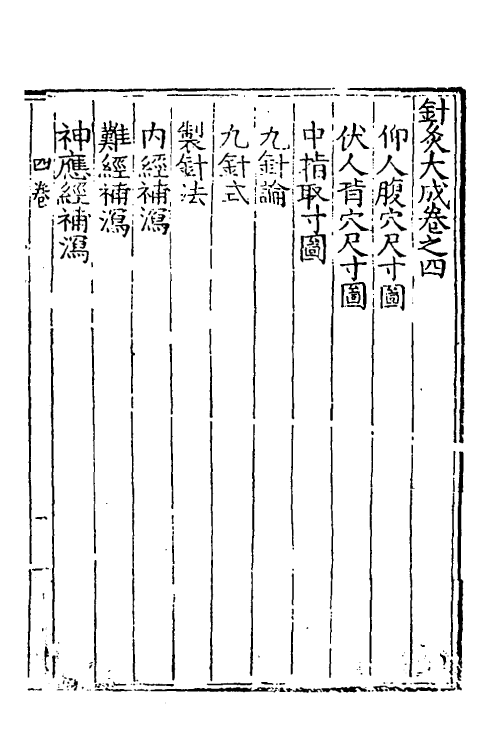 針灸大成卷之四
仰人腹穴尺寸圖
伏人背穴尺寸圖
中指取寸圖
九針論
九針式
製針法
內經補瀉
難經補瀉
神應經補瀉
四卷
一